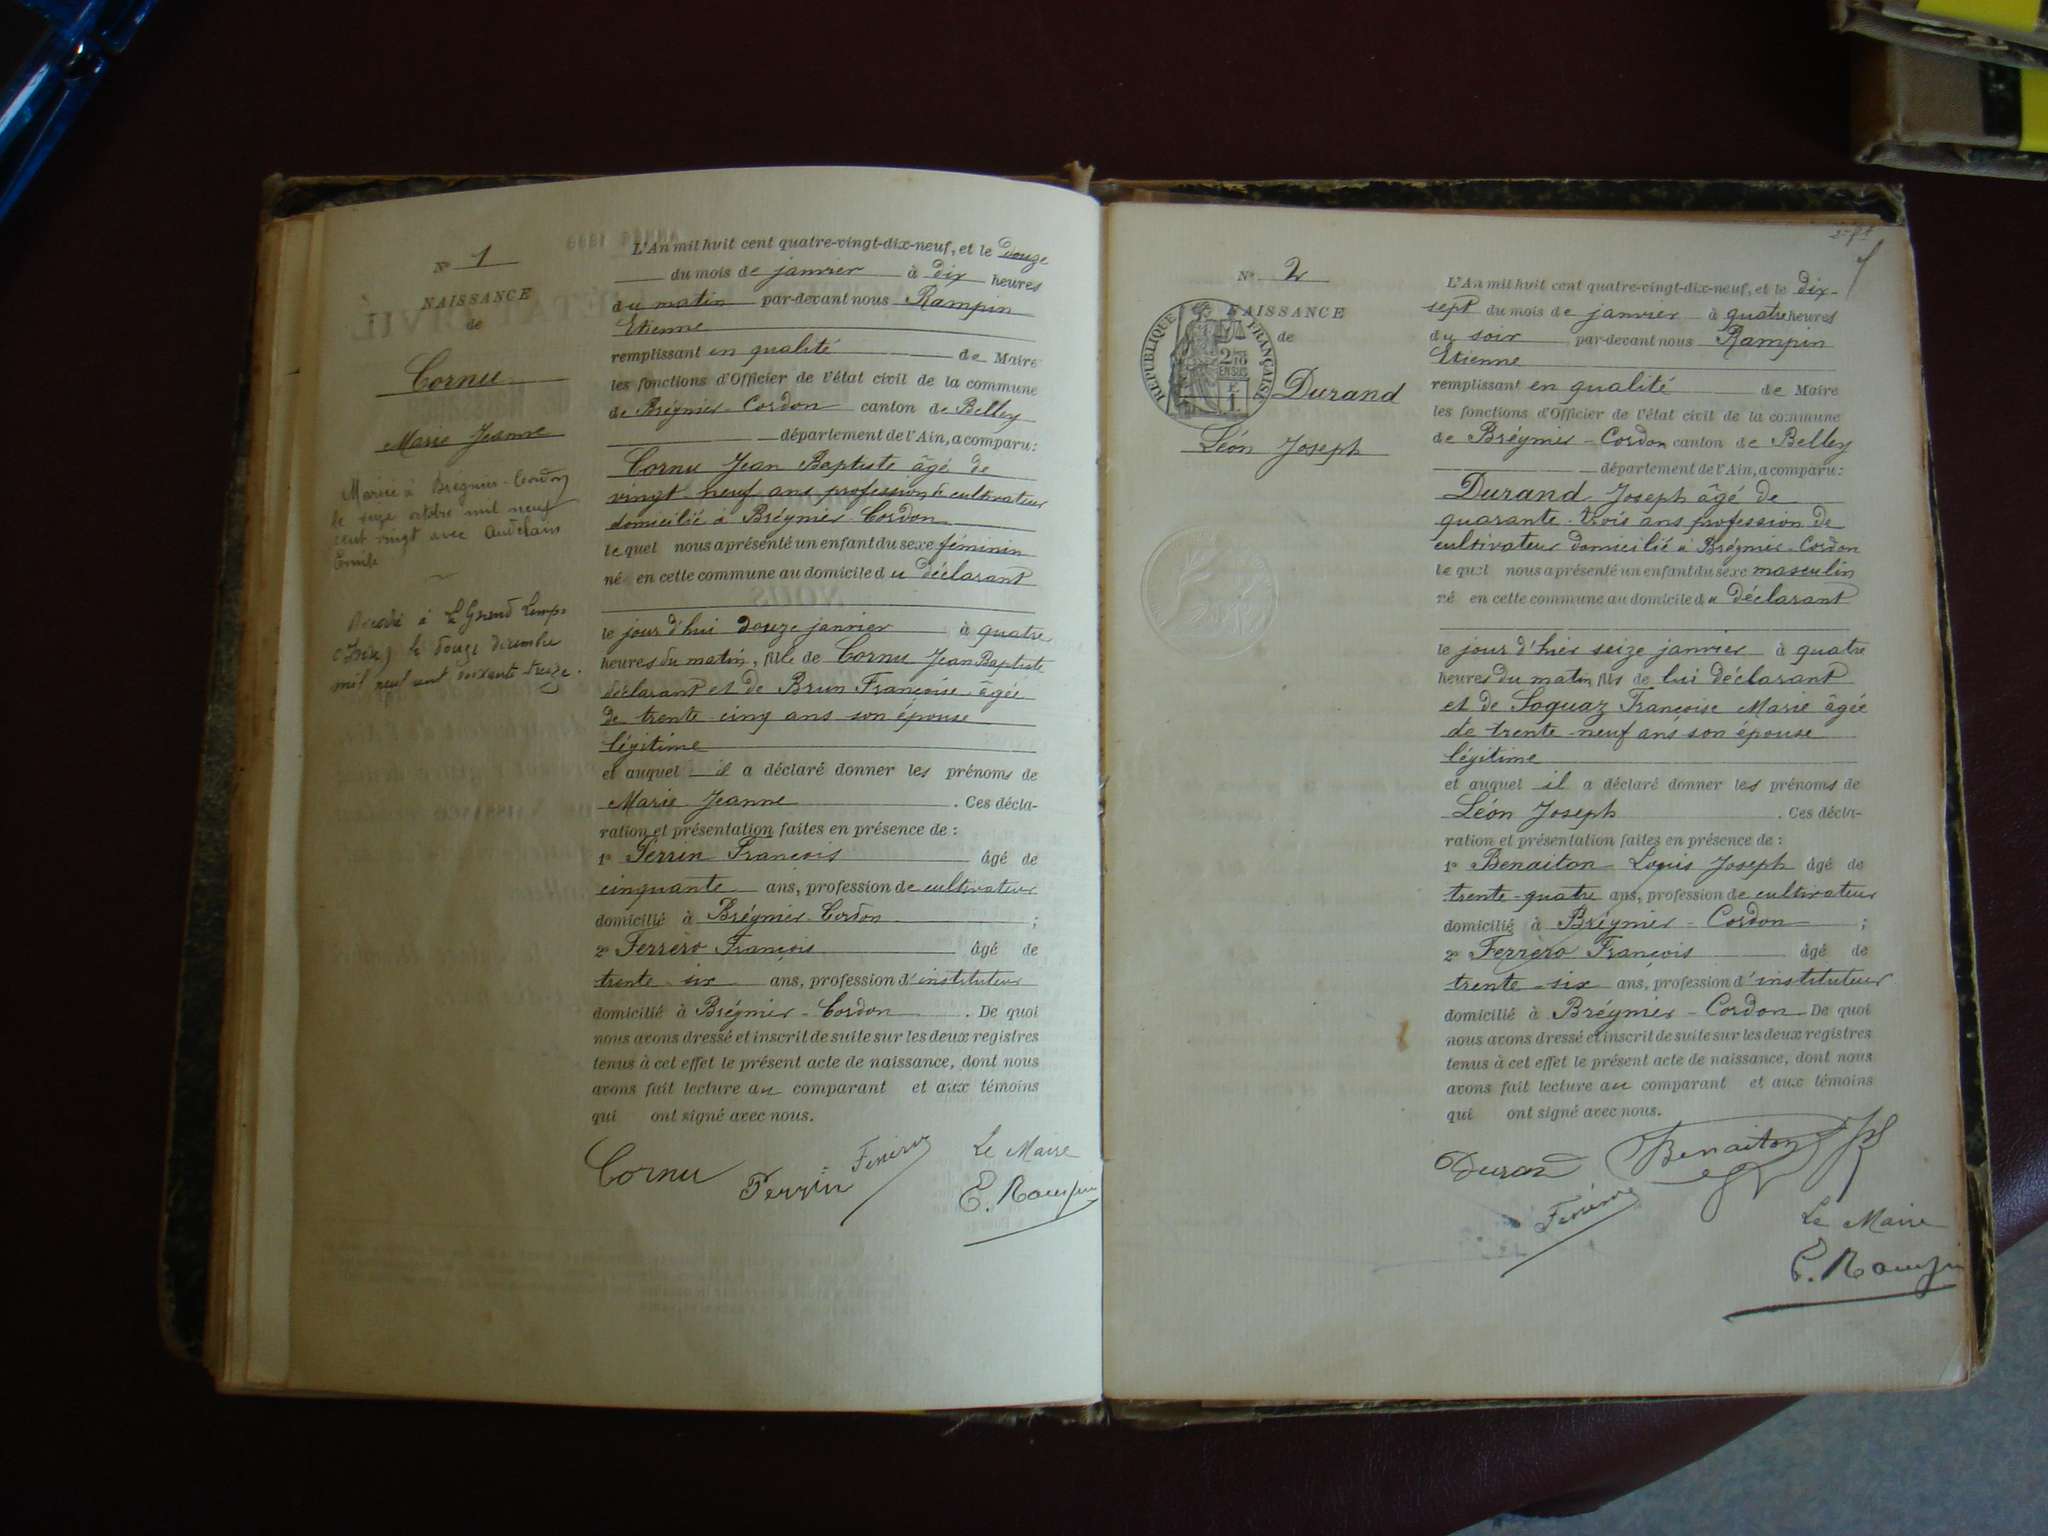 N° 1
NAISSANCE
de
Cornu
Marie Jeanne
Marié à Brégnier-Cordon
le seize octobre mil neuf
cent vingt avec
Emile
Décédé à Le Grand Lemps
(Isère) le douze décembre
mil neuf cent soixante treize.
L'An mil huit cent quatre-vingt-dix-neuf, et le douze
du mois de janvier à dix heures
du matin par-devant nous Rampin
Etienne
remplissant en qualité de Maire
les fonctions d'Officier de l'état civil de la commune
de Brégnier-Cordon canton de Belley
département de l'Ain, a comparu :
Cornu Jean Baptiste âgé de
vingt-neuf ans profession de cultivateur
domicilié à Brégnier-Cordon
lequel nous a présenté un enfant du sexe féminin
né en cette commune au domicile du déclarant
le jour d'hui douze janvier à quatre
heures du matin, fille de Cornu Jean Baptiste
déclarant et de Brun Françoise âgée
de trente-cinq ans son épouse
légitime
et auquel il a déclaré donner les prénoms de
Marie Jeanne. Ces décla-
ration et présentation faites en présence de :
1° Perrin François âgé de
cinquante ans, profession de cultivateur
domicilié à Brégnier-Cordon ;
2° Ferrero François âgé de
trente-six ans, profession d'instituteur
domicilié à Brégnier-Cordon. De quoi
nous avons dressé et inscrit de suite sur les deux registres
tenus à cet effet le présent acte de naissance, dont nous
avons fait lecture au comparant et aux témoins
qui ont signé avec nous.
Cornu Perrin Ferrero Le Maire
E. Rampin
N° 2
NAISSANCE
de
RÉPUBLIQUE FRANÇAISE
2/10 EN SUS
Durand
Léon Joseph
L'An mil huit cent quatre-vingt-dix-neuf, et le dix-
sept du mois de janvier à quatre heures
du soir par-devant nous Rampin
Etienne
remplissant en qualité de Maire
les fonctions d'Officier de l'état civil de la commune
de Brégnier-Cordon canton de Belley
département de l'Ain, a comparu :
Durand Joseph âgé de
quarante-trois ans profession de
cultivateur domicilié à Brégnier-Cordon
lequel nous a présenté un enfant du sexe masculin
né en cette commune au domicile du déclarant
le jour d'hier seize janvier à quatre
heures du matin, fils de lui déclarant
et de Soquaz Françoise Marie âgée
de trente-neuf ans son épouse
légitime
et auquel il a déclaré donner les prénoms de
Léon Joseph. Ces décla-
ration et présentation faites en présence de :
1° Benaiton Louis Joseph âgé de
trente-quatre ans, profession de cultivateur
domicilié à Brégnier-Cordon ;
2° Ferrero François âgé de
trente-six ans, profession d'instituteur
domicilié à Brégnier-Cordon De quoi
nous avons dressé et inscrit de suite sur les deux registres
tenus à cet effet le présent acte de naissance, dont nous
avons fait lecture au comparant et aux témoins
qui ont signé avec nous.
Durand Benaiton
Ferrero
Le Maire
E. Rampin